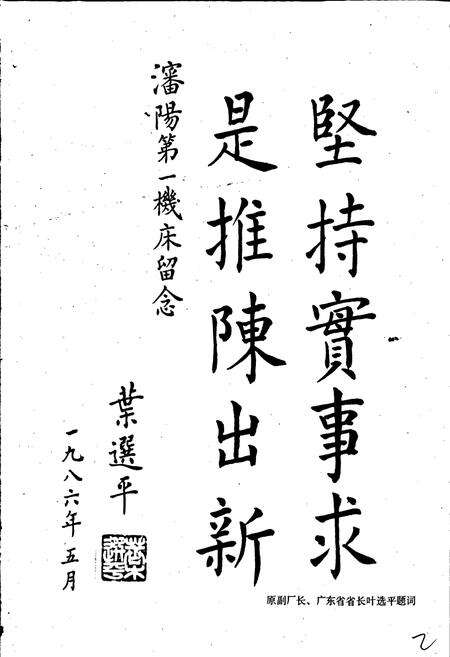 堅持實事求
是推陳出新
瀋陽第一機床留念
葉選平
一九八六年五月
原副厂长、广东省省长叶选平题词
乙